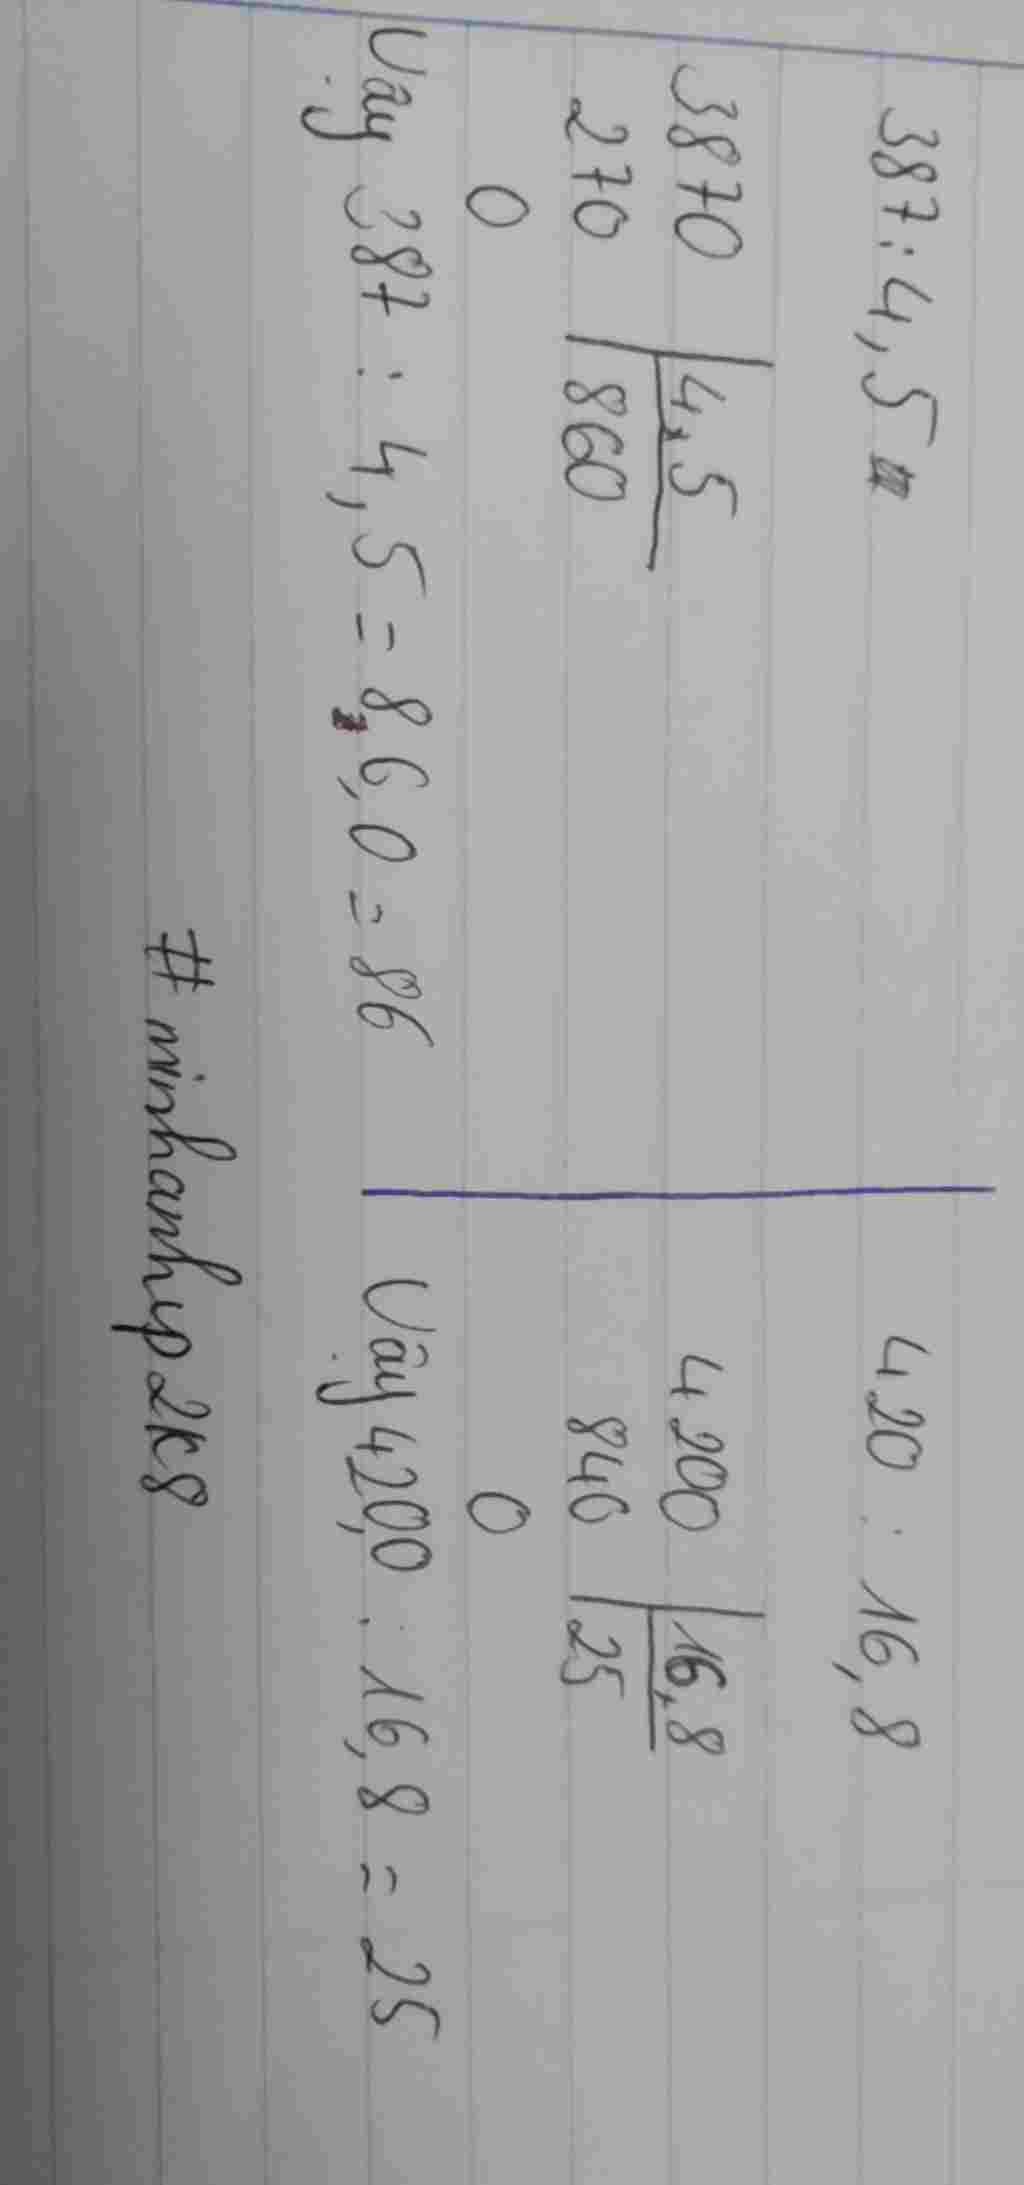 387 : 4,5
3870 | 4,5
270 | 860
0
Vậy 387 : 4,5 = 86,0 = 86
420 : 16,8
4200 | 16,8
840 | 25
0
Vậy 420,0 : 16,8 = 25
# minhanhvp2k8